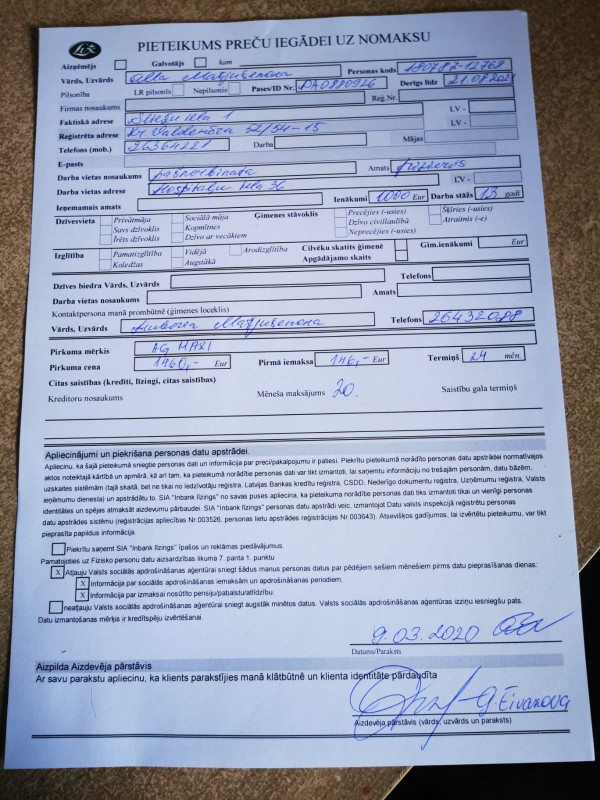 Lix
PIETEIKUMS PREČU IEGĀDEI UZ NOMAKSU
Aizņēmējs Galvotājs kam
Vārds, Uzvārds Alla Matjušenoka Personas kods 180787-12768
Pilsonība LR pilsonis Nepilsonis Pases/ID Nr. PA0880926 Derīgs līdz 21.08.202
Firmas nosaukums Reģ.Nr.
Faktiskā adrese iela 1 LV -
Reģistrēta adrese Kr. Valdemāra 52/54-15 LV -
Telefons (mob.) 26364221 Darba Mājas
E-pasts
Darba vietas nosaukums pašnorbinata Amats frizieris
Darba vietas adrese Hospitāļu iela 36 LV -
Ieņemamais amats Ienākumi 1000 Eur Darba stāžs 13 gadi
Dzīvesvieta Privātmāja Sociālā māja Ģimenes stāvoklis Precējies (-usies) Šķīries (-usies)
Savs dzīvoklis Kopmītnes Dzīvo civillaulībā Atraitnis (-e)
Īrēts dzīvoklis Dzīvo ar vecākiem Neprecējies (-usies)
Izglītība Pamatizglītība Vidējā Arodizglītība Cilvēku skaitīts ģimenē Gim.ienākumi Eur
Koledžas Augstākā Apgādājamo skaits
Dzīves biedra Vārds, Uzvārds Telefons
Darba vietas nosaukums Amats
Kontaktpersona manā prombūtnē (ģimenes loceklis)
Vārds, Uzvārds Matjušenoka Telefons 26432088
Pirkuma mērķis AG MAXI
Pirkuma cena 1460,- Eur Pirmā iemaksa 146,- Eur Termiņš 24 mēn.
Citas saistības (kredīti, līzingi, citas saistības)
Kreditoru nosaukums Mēneša maksājums 20. Saistību gala termiņš
Apliecinājumi un piekrišana personas datu apstrādei.
Apliecinu, ka šajā pieteikumā sniegtie personas dati un informācija par preci/pakalpojumu ir patiesi. Piekrītu pieteikumā norādīto personas datu apstrādei normatīvajos
aktos noteiktajā kārtībā un apmērā, kā arī tam, ka pieteikumā norādītie personas dati var tikt izmantoti, lai saņemtu informāciju no trešajām personām, datu bāzēm,
uzskaites sistēmām (tajā skaitā, bet ne tikai no Iedzīvotāju reģistra, Latvijas Bankas kredītu reģistra, CSDD, Nederīgo dokumentu reģistra, Uzņēmumu reģistra, Valsts
ieņēmumu dienesta) un apstrādātu to. SIA "Inbank līzings" no savas puses apliecina, ka pieteikuma norādītie personas dati tiks izmantoti tikai un vienīgi personas
identitātes un spējas atmaksāt aizdevumu pārbaudei. SIA "Inbank līzings" personas datu apstrādi veic, izmantojot Datu valsts inspekcijā reģistrētu personu
datu apstrādes sistēmu (reģistrācijas apliecības Nr.003526, personas lietu apstrādes reģistrācijas Nr.003643). Atsevišķos gadījumos, lai izvērtētu pieteikumu, var tikt
pieprasīta papildus informācija.
Piekrītu saņemt SIA "Inbank līzings" īpašos un reklāmas piedāvājumus.
Pamatojoties uz Fizisko personu datu aizsardzības likuma 7. panta 1. punktu
X Atļauju Valsts sociālās apdrošināšanas aģentūrai sniegt šādus manus personas datus par pēdējiem sešiem mēnešiem pirms datu pieprasīšanas dienas:
X Informācija par sociālās apdrošināšanas iemaksām un apdrošināšanas periodiem;
X Informācija par izmaksai nosūtīto pensiju/pabalstu/atlīdzību.
neatļauju Valsts sociālās apdrošināšanas aģentūrai sniegt augstāk minētos datus. Valsts sociālās apdrošināšanas aģentūras izziņu iesniegšu pats.
Datu izmantošanas mērķis ir kredītspēju izvērtēšanai.
9.03.2020
Datums/Paraksts
Aizpilda Aizdevēja pārstāvis
Ar savu parakstu apliecinu, ka klients parakstījies manā klātbūtnē un klienta identitāte pārbaudīta
G. Eivanova
Aizdevēja pārstāvis (vārds, uzvārds un paraksts)